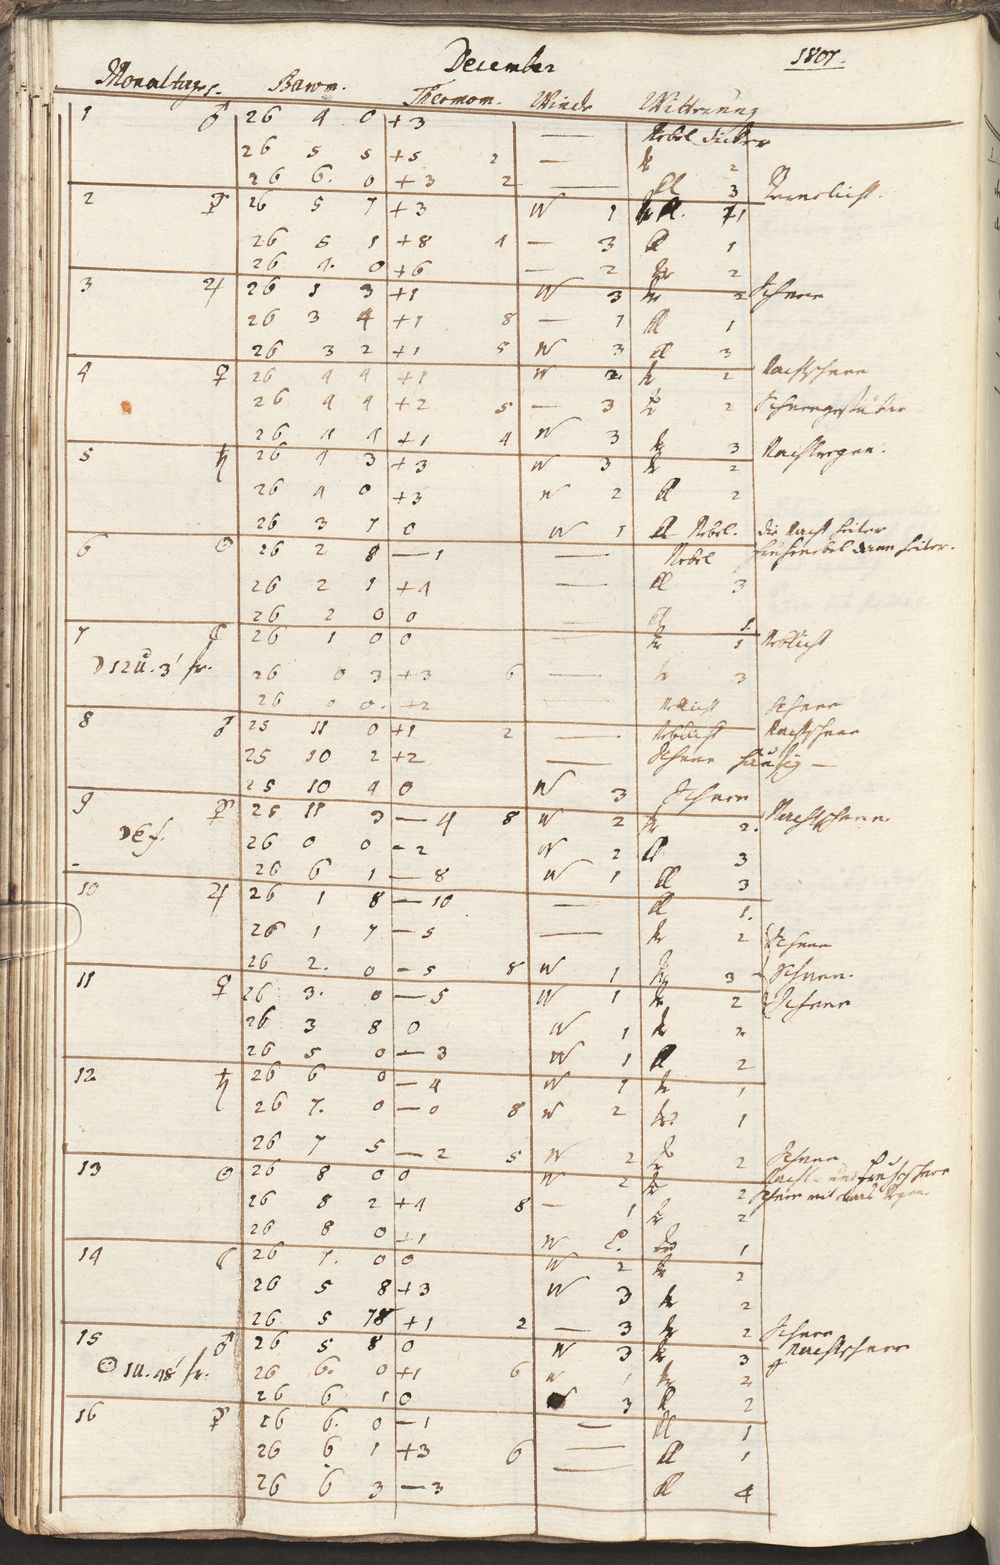 December 1807.
Monatstage. Barom. Thermom. Winde Witterung
1 ♂ 26 4 0 +3 — Nebel dicker
26 5 5 +5 2 — tr 2
26 6. 0 +3 2 — hl 3
2 ☿ 26 5 7 +3 W 1 1
26 5 1 +8 4 — 3 hl 1
26 4. 0 +6 — 2 tr 2
3 ♃ 26 1 3 +1 W 3 tr 2 Schnee
26 3 4 +1 8 — 1 hl 1
26 3 2 +1 5 W 3 hl 3
4 ♀ 26 4 4 +1 W 2. tr 2 Nachtschnee
26 4 4 +2 5 — 3 tr 2 Schneegestöber
26 4 4 +1 4 W 3 tr 3
5 ♄ 26 4 3 +3 W 3 tr 2 Nachtregen.
26 4 0 +3 W 2 hl 2
26 3 7 0 W 1 hl Nebel. die Nacht heiter
6 ☉ 26 2 8 — 1 — Nebel frühnebel dann heiter.
26 2 1 +4 — hl 3
26 2 0 0 — hl 1.
7 ☾ 26 1 0 0 — tr 1 Neblicht
☽ 12 U. 3' fr. 26 0 3 +3 6 — tr 3
26 0 0. +2 — neblicht Schnee
8 ♂ 25 11 0 +1 2 — Neblicht Nachtschnee
25 10 2 +2 — Schnee häufig —
25 10 4 0 W 3 Schnee
9 ☿ 25 11 3 — 4 8 W 2 tr 2. Nachtschnee.
26 0 0 - 2 W 2 hl 3
26 6 1 — 8 W 1 hl 3
10 ♃ 26 1 8 — 10 — hl 1.
26 1 7 — 5 — tr 2 Schnee
26 2. 0 - 5 8 W 1 tr 3 Schnee.
11 ♀ 26 3. 0 — 5 W 1 tr 2 Schnee
26 3 8 0 W 1 tr 2
26 5 0 — 3 W 1 hl 2
12 ♄ 26 6 0 — 4 W 1 tr 1
26 7. 0 — 0 8 W 2 tr 1
26 7 5 — 2 5 W 2 tr 2 Schnee
13 ☉ 26 8 0 0 W 2 tr 2 Nacht- und frühschnee
26 8 2 +4 8 — 1 tr 2 Schnee mit Regen.
26 8 0 +1 W tr 1
14 ☾ 26 7. 0 0 W 2 tr 2
26 5 8 +3 W 3 tr 2
26 5 78 +1 2 — 3 tr 2 Schnee
15 ♂ 26 5 8 0 W 3 tr 3 Nachtschnee
☉ 1 U. 48' fr. 26 6. 0 +1 6 W 1 tr 2
26 6 1 0 W 3 hl 2
16 ☿ 26 6. 0 — 1 — hl 1
26 6 1 +3 6 — hl 1
26 6 3 — 3 — hl 4